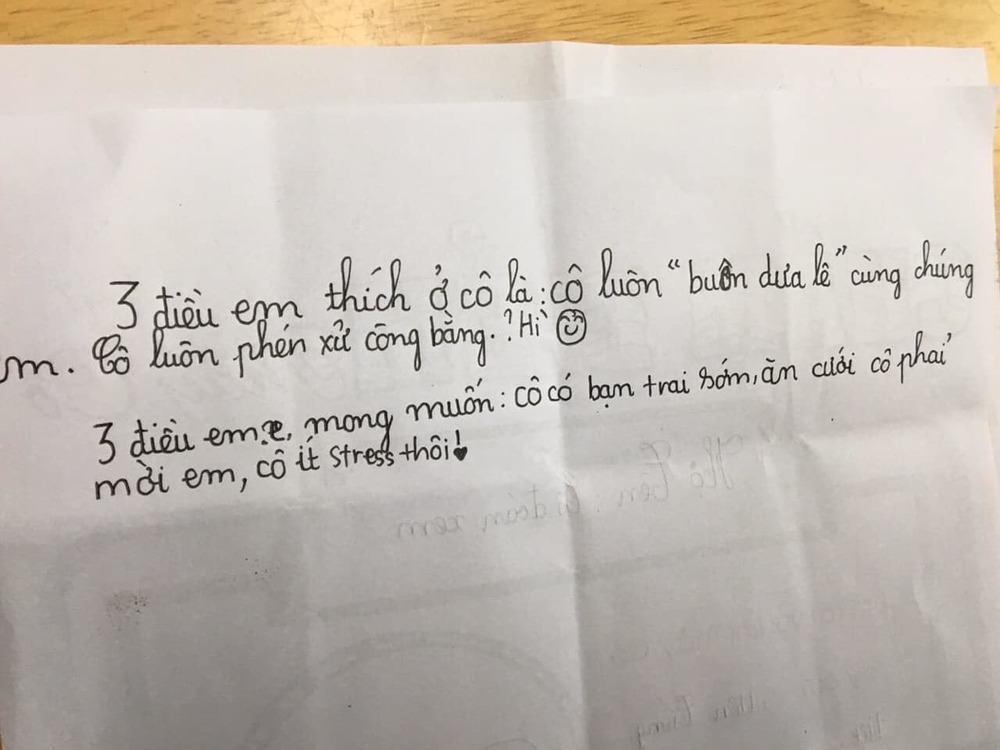 3 điều em thích ở cô là: cô luôn "buôn dưa lê" cùng chúng
m. Cô luôn phén xử công bằng. ? Hì
3 điều em mong muốn: cô có bạn trai sớm, ăn cưới cô phải
mời em, cô ít stress thôi!
Họ tên: Cô đoán xem